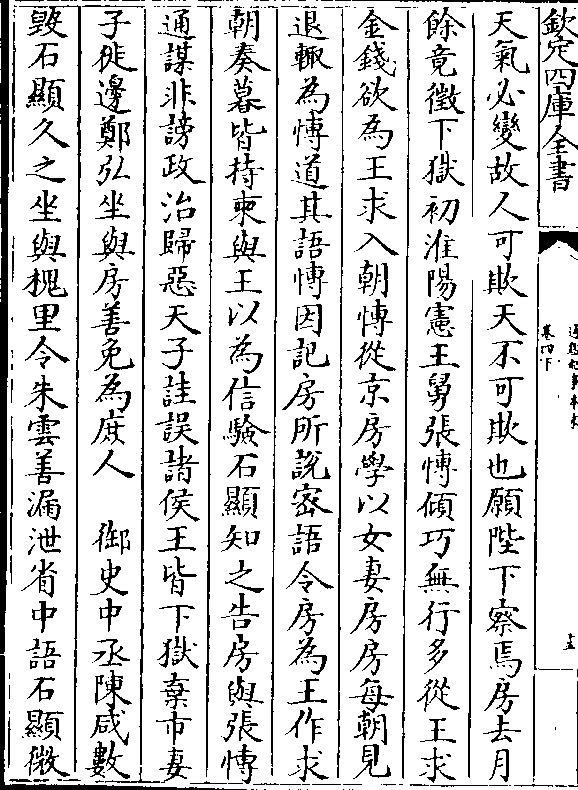 欽定四庫全書
通鑑紀事本末
卷四下
十五
天氣必變故人可欺天不可欺也願陛下察焉房去月
餘竟徵下獄初淮陽憲王舅張愽傾巧無行多從王求
金錢欲為王求入朝愽從京房學以女妻房房每朝見
退輙為愽道其語愽因記房所說宻語令房為王作求
朝奏草皆持柬與王以為信驗石顯知之告房與張愽
通謀非謗政治歸惡天子詿誤諸侯王皆下獄棄市妻
子徙邊鄭弘坐與房善免為庶人　御史中丞陳咸數
毀石顯久之坐與槐里令朱雲善漏泄省中語石顯微